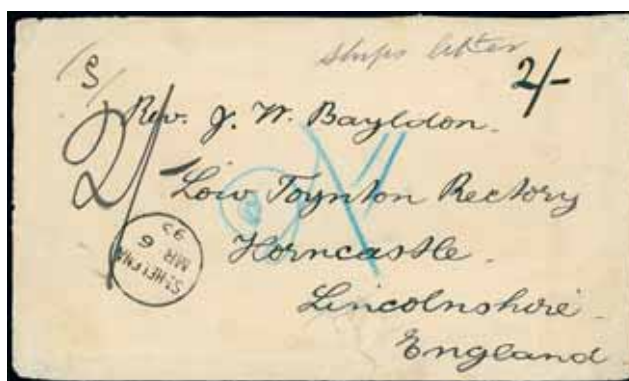 Ships letter
2/-
Rev. J. W. Bayldon.
Low Toynton Rectory
Horncastle.
Lincolnshire.
England.
2/
ST HELENA
MR 6
95